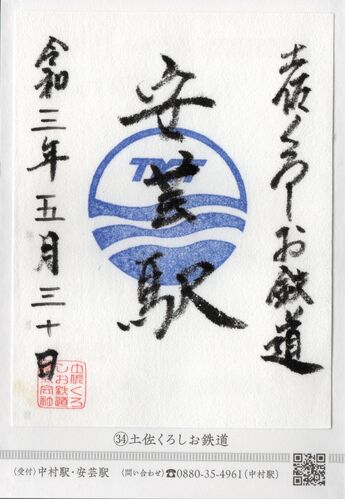 土佐くろしお鉄道
安芸駅
TKT
令和三年五月三十日
㉞土佐くろしお鉄道
〈受付〉中村駅・安芸駅 〈問い合わせ〉☎0880-35-4961(中村駅)